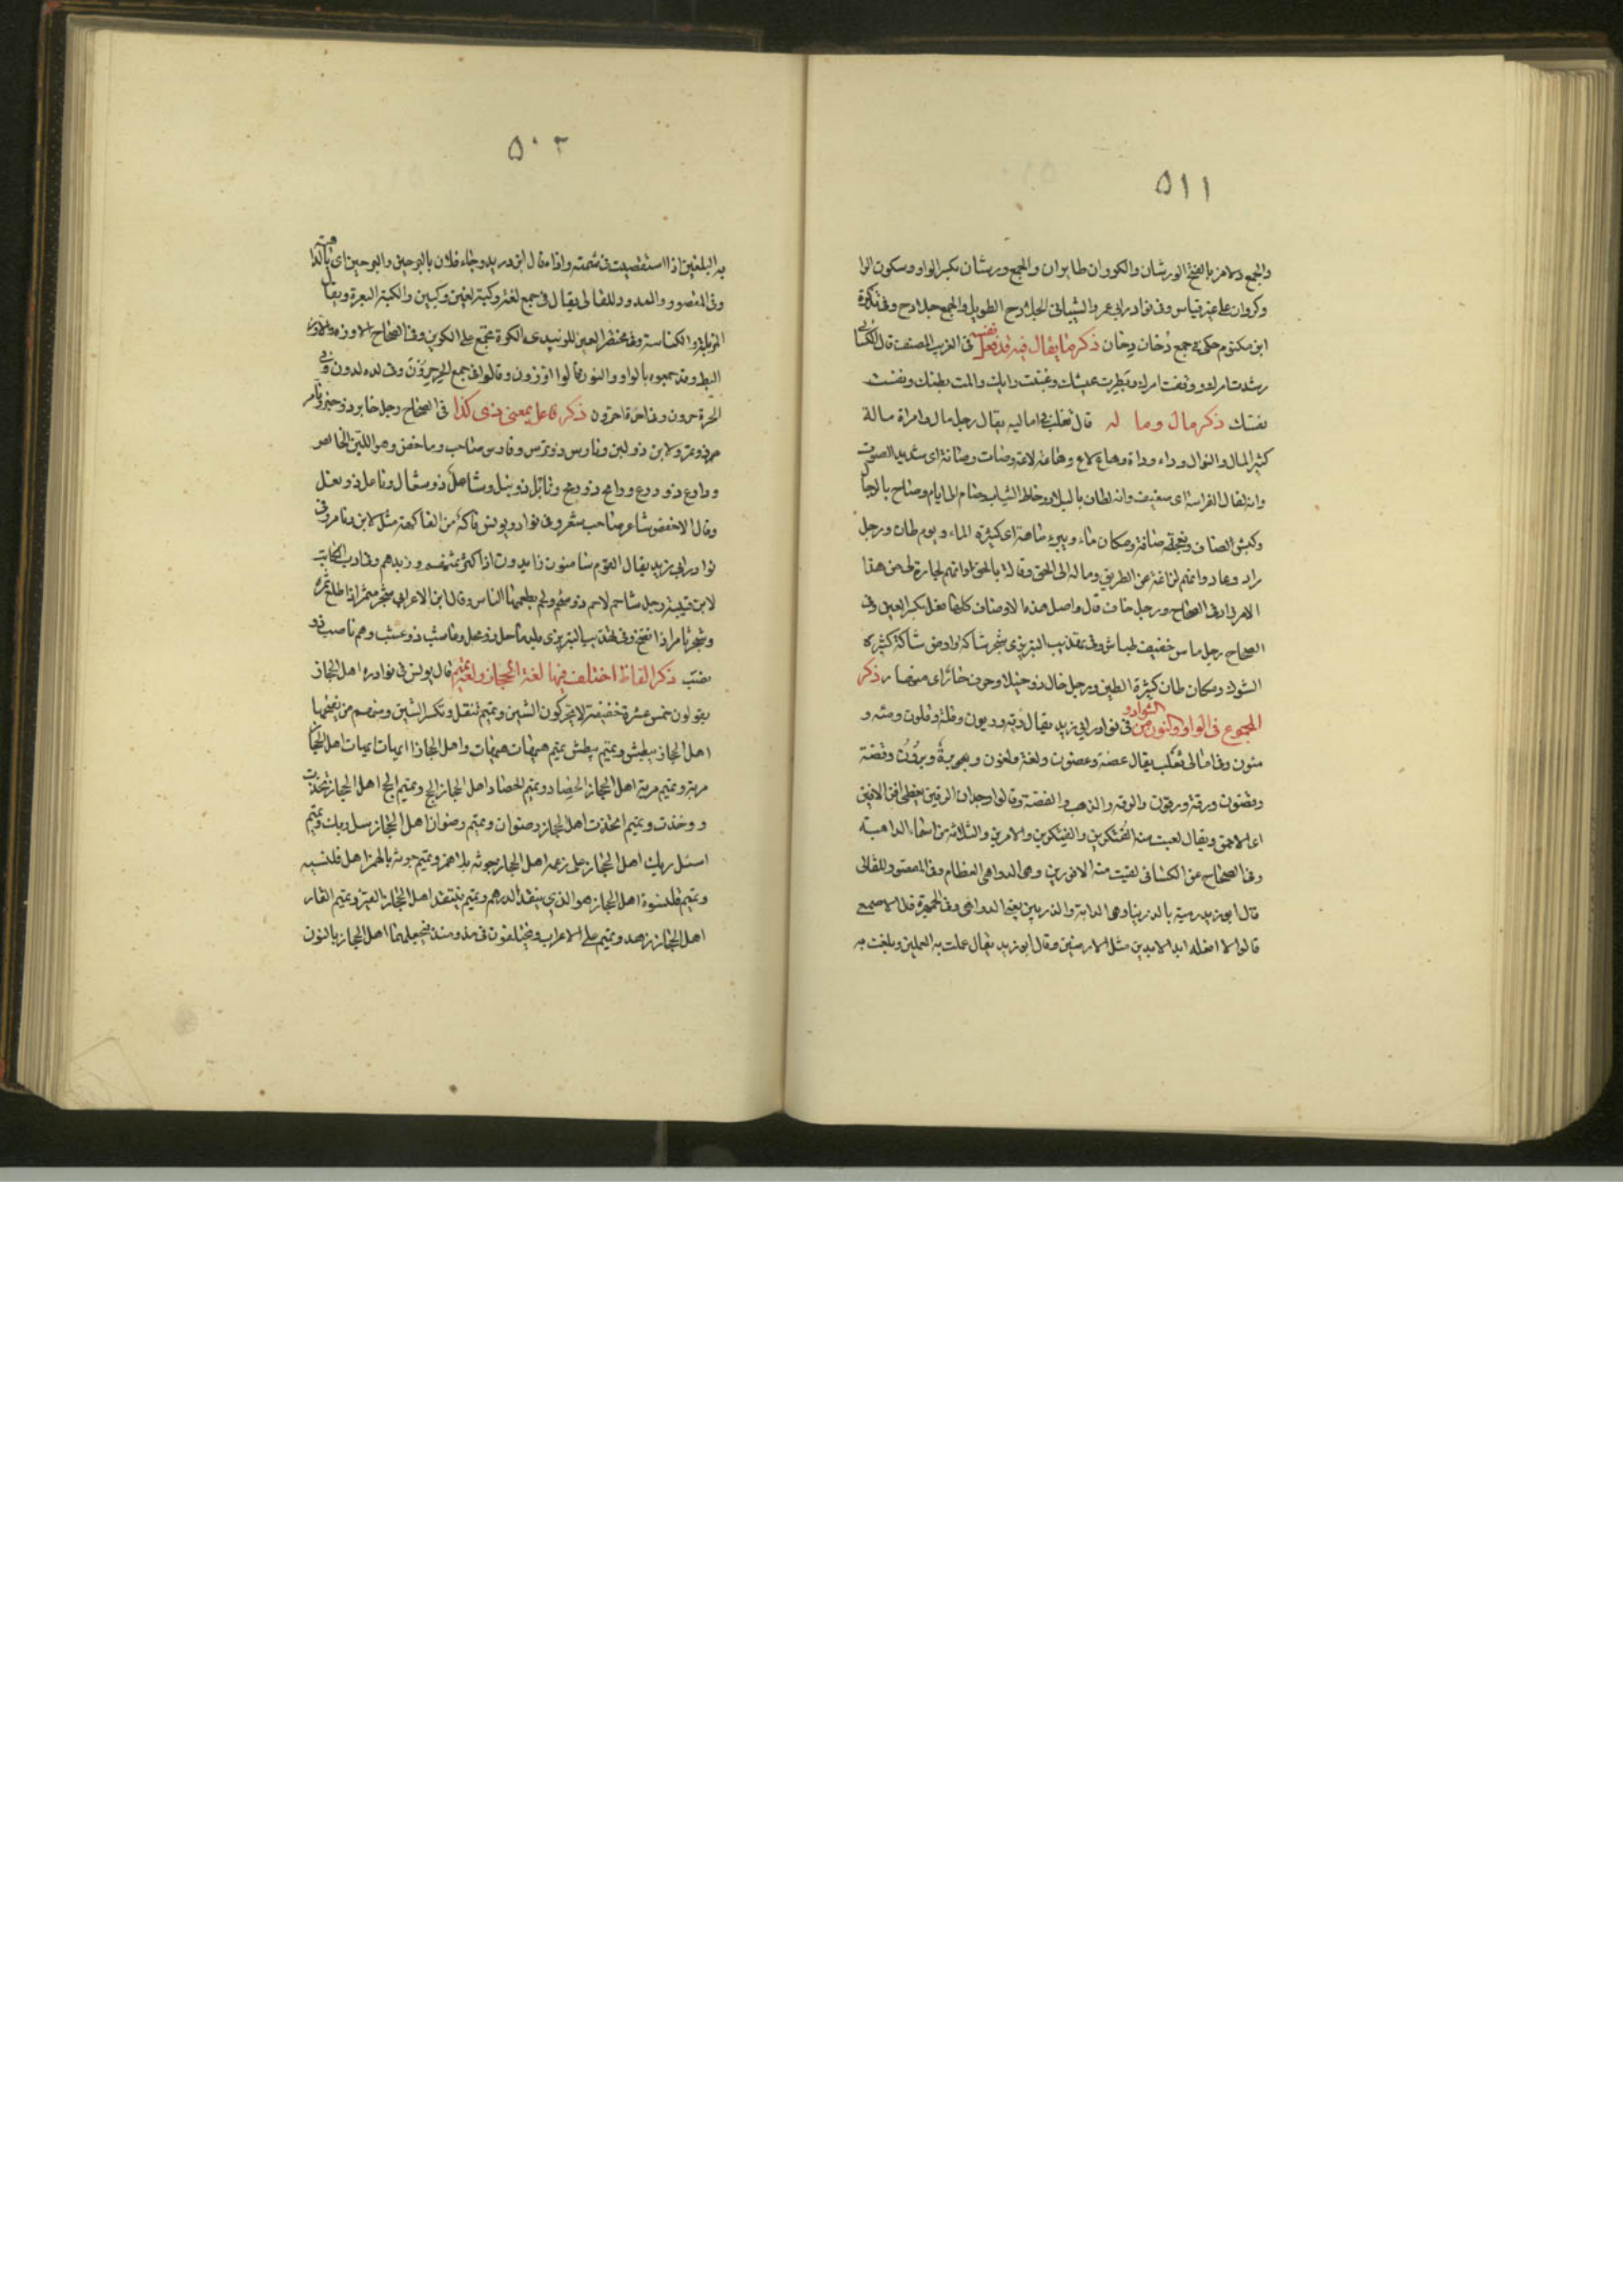 ٥١١
والجمع دلامز بالفتح الورشان والكروان طايران والجمع ورشان بكسر الواو وسكون الرا
وكروان على غير قياس وفى نوادر ابى عمرو الشيبانى الجلادح الطويل والجمع جلادح وفى تذكرة
ابن مكتوم حكى فى جمع دُخان دِخان ذكر ما يقال فيه قد فعل نفسه فى الغريب المصنف قال الكسائى
رشدت امرك ووفقت امرك وبطرت عيشك وغبنت رايك والمت بطنك وسفهت
نفسك ذكر مال وما له قال ثعلب فى اماليه يقال رجل مال وامراة مالة
كثير المال والنوال وداء وداة وهاع لاع وهاعة لاعة وصات وصاتة اى شديد الصوت
وانه لفال الفراسة اى ضعيف وانه لطاف بالبلاد وخاط الثياب وصام الى ايام وصاح بالرجال
وكبش الصاف ونعجة صافة ومكان ماء وبير ماهة اى كثيرة الماء ويوم طان ورجل
راد وعاد وانهم لزاغة عن الطريق وماله الى الحق وقالة بالحق وانهم لجارة لى من هذا
الامر زاد فى الصحاح ورجل خاف قال واصل هذه الاوصاف كلها فعل بكسر العين وفى
الصحاح رجل ماس خفيف طياش وفى تهذيب التبريزى شجر شاك وارض شاكة كثيرة
الشوك ومكان طان كثيرة الطين ورجل خال ذو خيلا وجرف هار اى منهار ذكر
المجموع فى الواو والنون من الشوادر فى نوادر ابى زيد يقال رثة ورثون وقلة وقلون ومئة و
مئون وفى امالى ثعلب يقال عضة وعضون ولغة ولغون وبرة وبرون وقضة
وقضون ورقة ورقون والرقة والذهب والفضة وقالوا وجدان الرقين يغطى افن الافين
اى الاحمق ويقال لقيت منه الفتكرين والفتكرين والامرين والثلاثة من اسماء الداهية
وفى الصحاح عن الكسائى لقيت منه الاقورين وهى الدواهى العظام وفى المقصور للقالى
قال ابو زيد رميته بالذربيا وهى الداهية والذربين يعنى الدواهى وفى الجمهرة قال الاصمعى
قالوا لا افعله ابد الابدين مثل الارضين وقال ابو زيد يقال عملت به العملين وبلغت به
٥٠٢
به البلغين اذا استقصيت فى شتمه واذاه وقال ابن دريد وجاء فلان بالبرحين والبرحين اى بالداهية
وفى المقصور والممدود للقالى يقال فى جمع لغة وكبة لغين وكبين والكبة البعرة ويقال
المزبلة والكناسة وفى مختصر العين للزبيدى الكرة تجمع على الكرين وفى الصحاح الاوزة والاوز
البط وقد جمعوه بالواو والنون قالوا اوزون وقالوا فى جمع الحر حرون وفى لدة لدون وفى
الحرة حرون وفى احرة احرون ذكر فاعل بمعنى ذى كذا فى الصحاح رجل خابر ذو خبز وتامر
ذو تمر ولابن ذو لبن وتارس ذو ترس وفارس صاحب وماحض وهو اللبن الخالص
ودارع ذو درع ورامح ذو رمح ونابل ذو نبل وشاعل ذو سعال وناعل ذو نعل
وقال الاخفش شاعر صاحب شعر وفى نوادر يونس فاكه من الفاكهة مثل لابن وتامر وفى
نوادر ابى زيد يقال القوم سامنون زابدون اذا كثر سمنهم وزبدهم وفى ادب الكاتب
لابن قتيبة رجل شاحم لاحم ذو شحم ولحم يطعمهما الناس وقال ابن الاعرابى شجر مثمر اذا طلع ثمره
وشجر ثامر اذا نضج وفى تهذيب التبريزى بلد ماحل ذو محل وعاشب ذو عشب وهم ناصب ذو
نصب ذكر الفاظ اختلف فيها لغة الحجاز ولغة تميم قال يونس فى نوادره اهل الحجاز
يقولون خمس عشرة خفيفة لا يحركون الشين وتميم تثقل وتكسر الشين ومنهم من يفتحها
اهل الحجاز يبطش وتميم يبطش تميم هيهات هيهات واهل الحجاز ايهات ايهات اهل الحجاز
مرية وتميم مرية اهل الحجاز الحصاد وتميم الحصاد اهل الحجاز الحج وتميم الحج اهل الحجاز تخذت
ووخذت وتميم اتخذت اهل الحجاز رضوان وتميم رضوان اهل الحجاز سل ربك وتميم
اسئل ربك اهل الحجاز على زعمه اهل الحجاز جونة بلا همز وتميم جونة بالهمز اهل قلنسية
وتميم قلنسوة اهل الحجاز هو الذى ينقد الدرهم وتميم ينتقد اهل الحجاز القير وتميم القار
اهل الحجاز زهد وتميم على الاعراب ويختلفون فى مذ ومنذ يجعلها اهل الحجاز بالنون